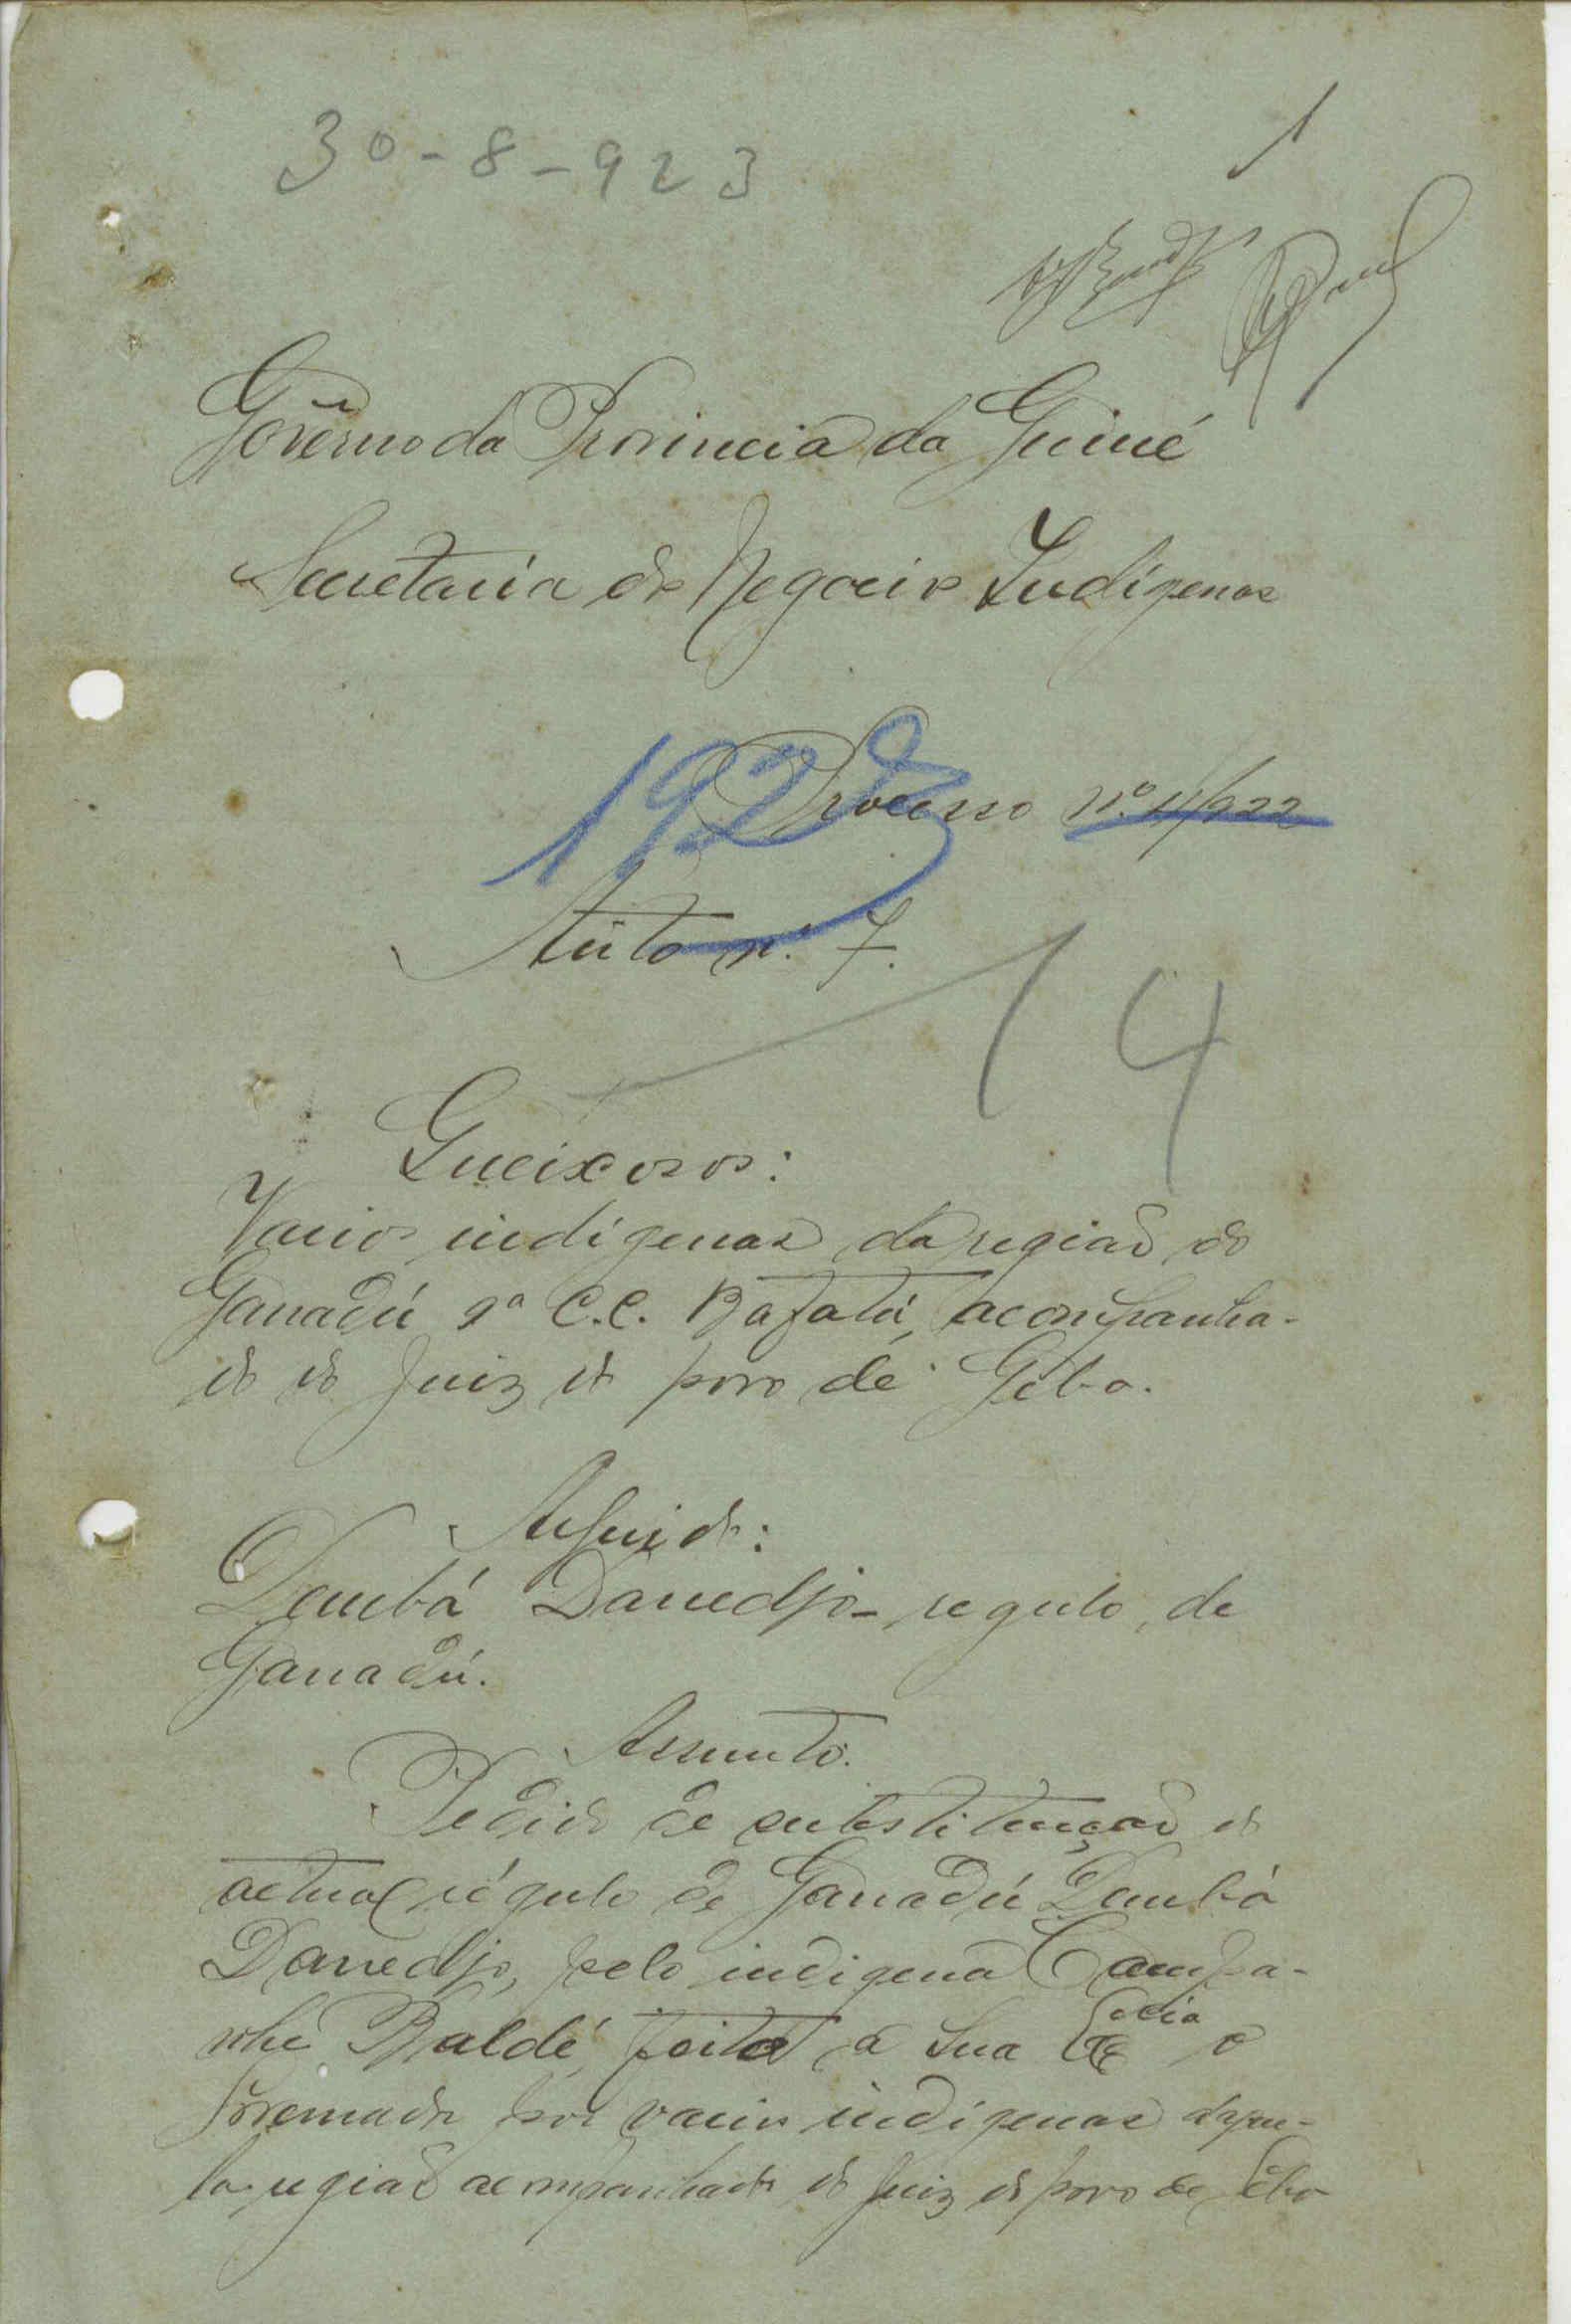 30-8-923
1
Govêrno da Provincia da Guiné
Secretaria dos Negocios Indígenas
192
Processo nº 4/922
Auto nº 7.
14
Queixosos:
Varios indígenas da região do
Ganadú 9ª C.C. Bafatá, acompanha-
do do Juiz do povo de Geba.
Arguido:
Dembá Danedjo - regulo de
Ganadú.
Assunto.
Pedido de substituição do
actual régulo de Ganadú Dembá
Danedjo, pelo indigena Campa-
Baldé, feita a Sua Excia o
Governador por varios indígenas daque-
la região acompanhado do Juiz do povo de Geba